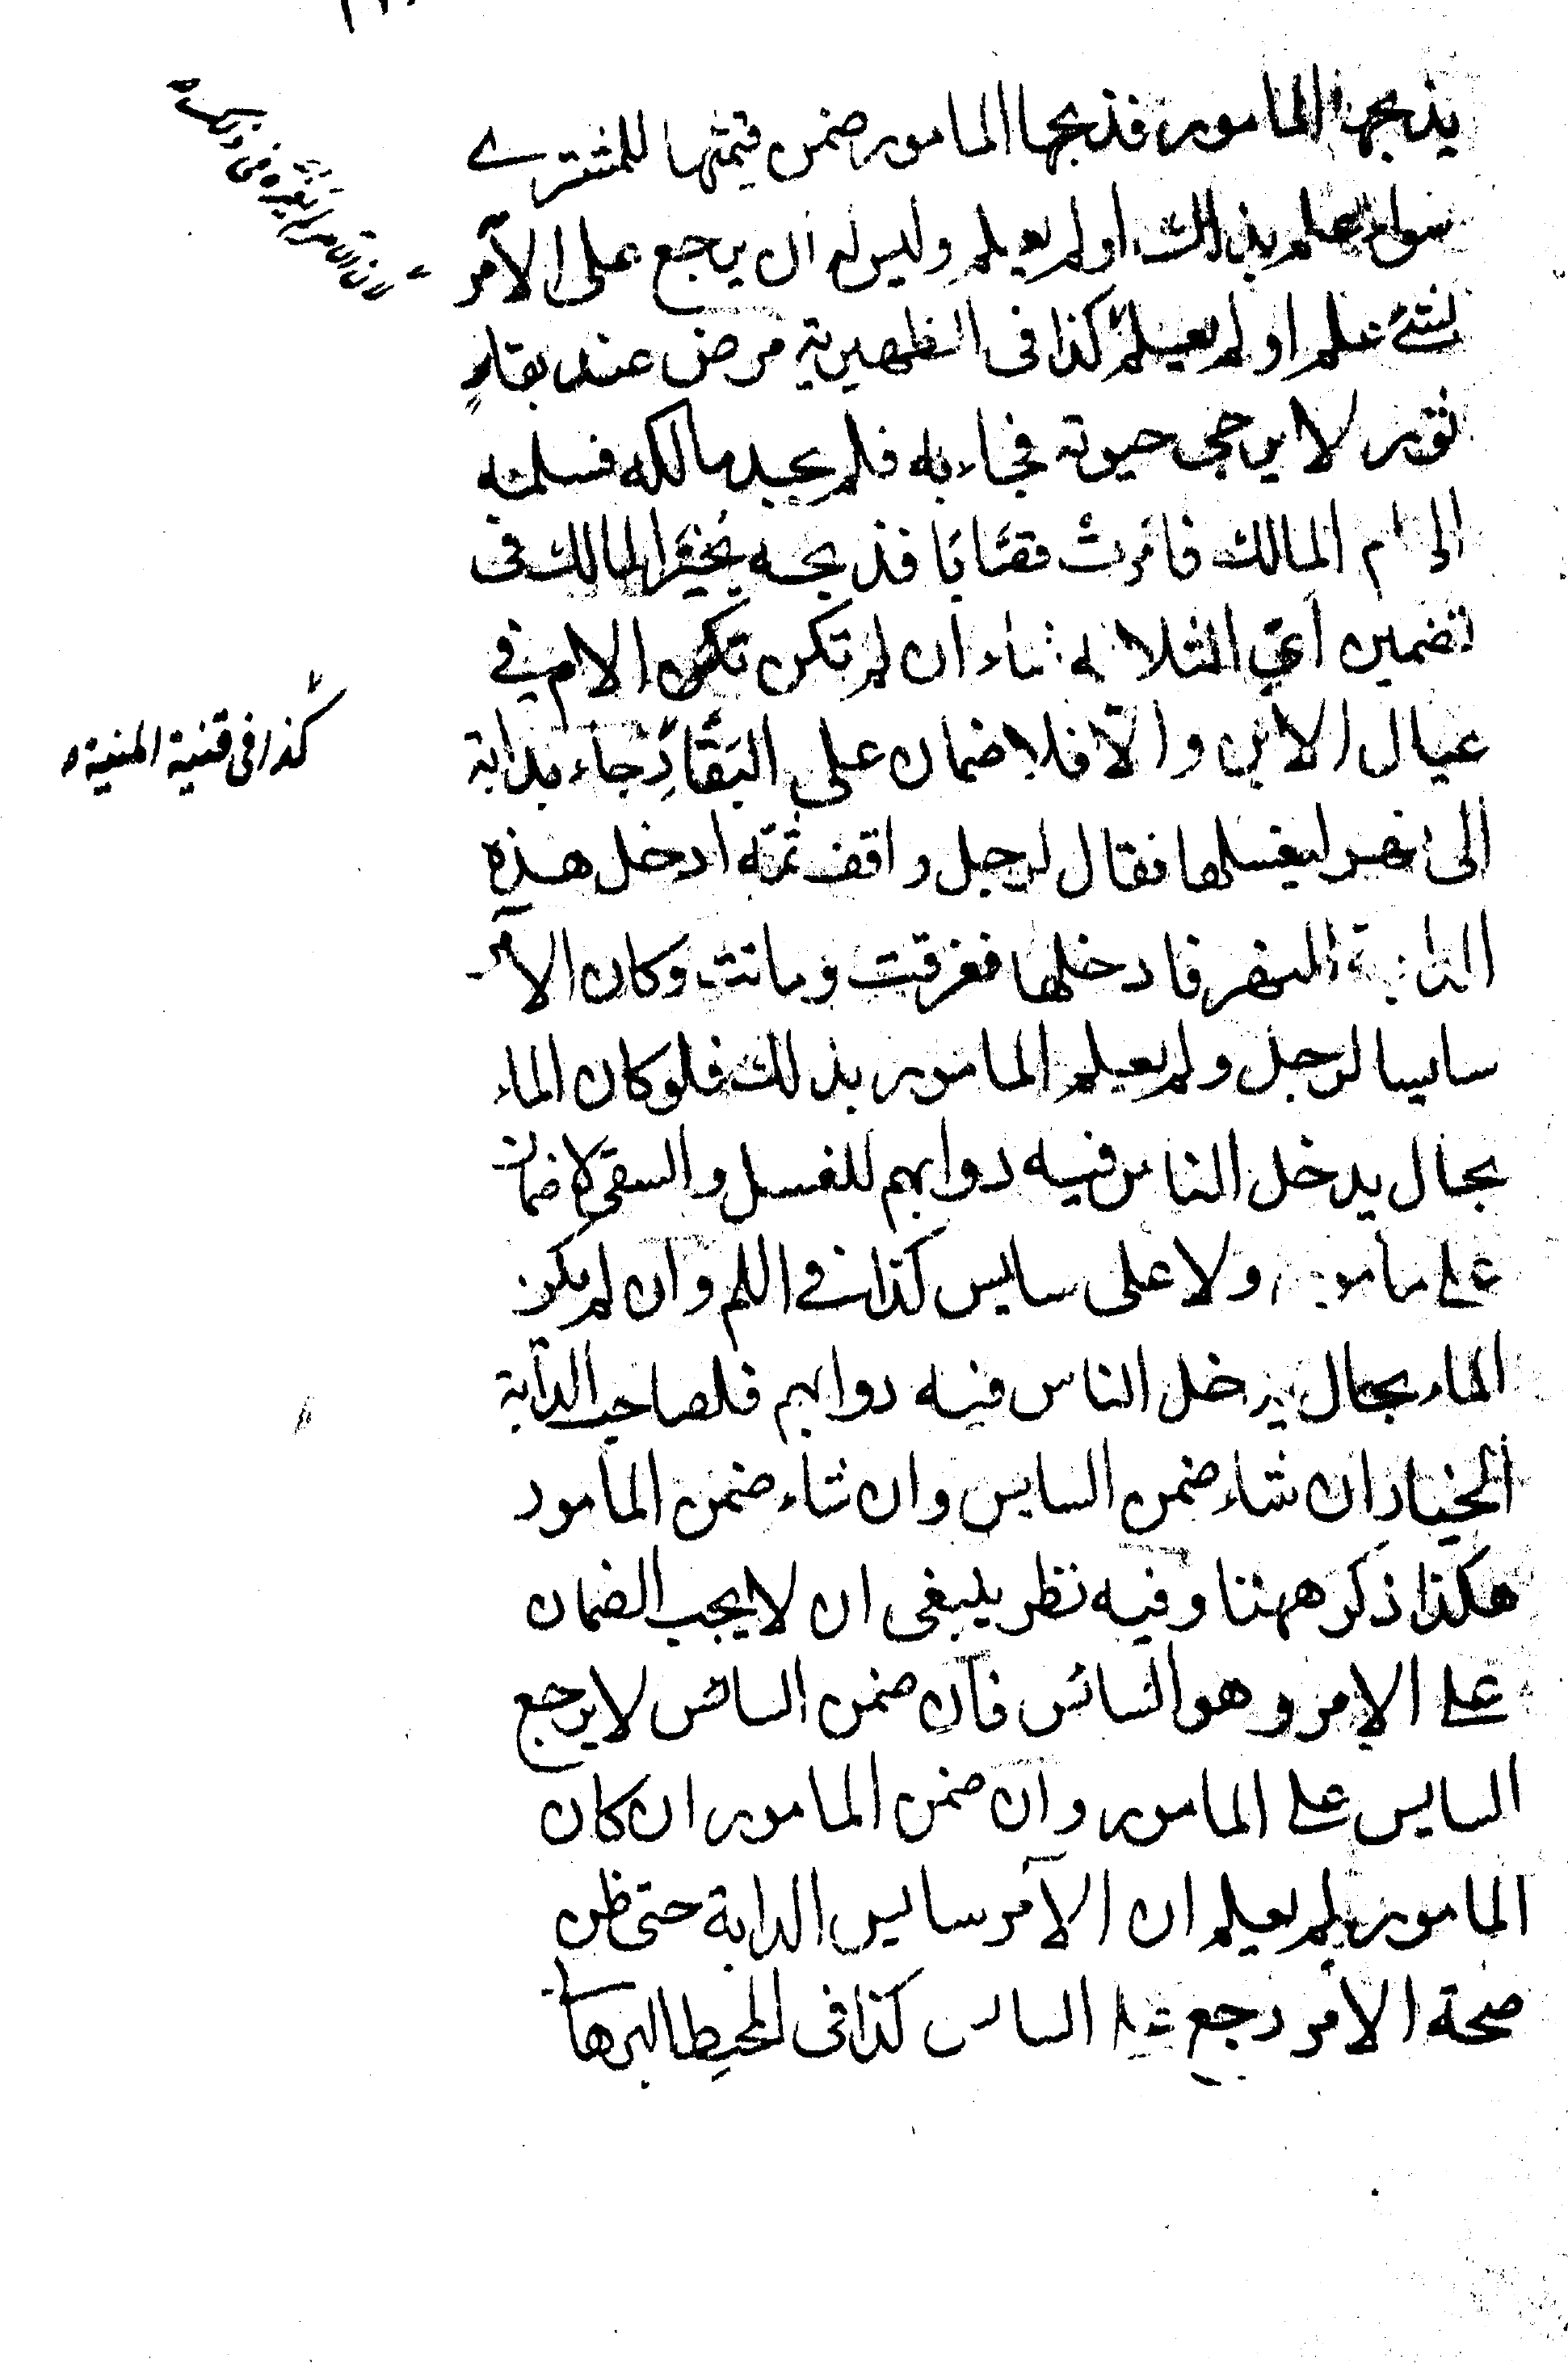 يذبحها المامور فذبحها المامور ضمن قيمتها للمشترى
سواء علم بذلك او لم يعلم وليس له ان يرجع على الآمر
بشئ علم او لم يعلم كذا فى الظهيرية مرض عند بقار
ثور لا يرجى حيوته فجاء به فلم يجد مالكه فسلمه
الى ام المالك فامرت قصابا فذبحه يخير المالك فى
تضمين اىّ الثلاثة شاء ان لم تكن تكن الام في
عيال الابن والّا فلا ضمان على البَقّارِ جاء بدابة
كذا فى قنية المنية
الى نهر ليغسلها فقال لرجل واقف ثمّه ادخل هذه
الدابة النهر فادخلها فغرقت وماتت وكان الآمر
سايسا لرجل ولم يعلم المامور بذلك فلو كان الماء
بحال يدخل الناس فيه دوابهم للغسل والسقى لا ضمان
على مامور ولا على سايس كذا فى اللم وان لم يكن
الماء بحال يدخل الناس فيه دوابهم فلصاحب الدآبة
الخيار ان شاء ضمن السايس وان شاء ضمن المامور
هكذا ذكر ههنا وفيه نظر ينبغى ان لا يجب الضمان
على الامر وهو السائس فان ضمن السائس لا يرجع
السايس على المامور وان ضمن المامور ان كان
المامور لم يعلم ان الآمر سايس الدابة حتى ظن
صحة الامر رجع على السايس كذا فى المحيط البرهانى